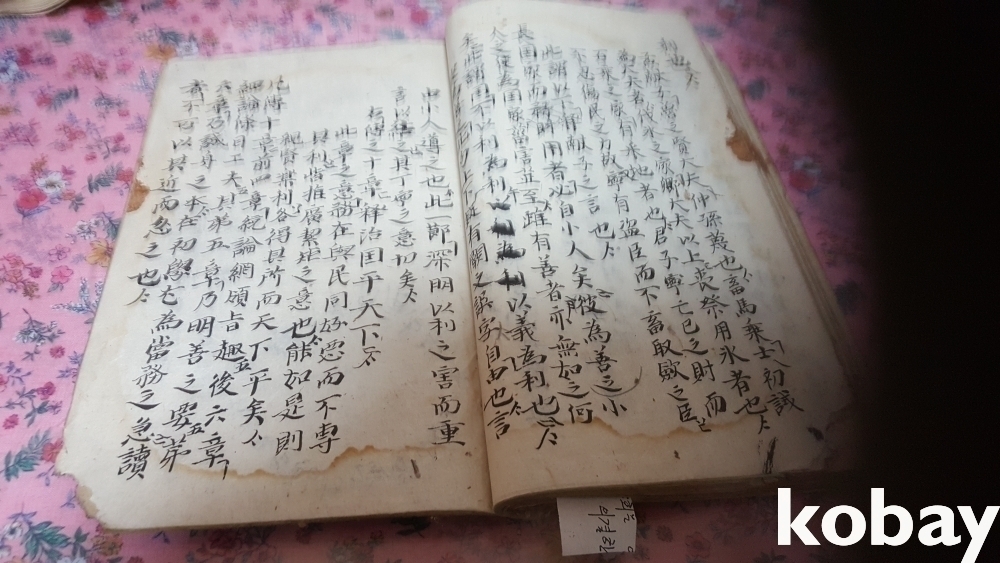 孟献子魯之賢大夫仲孫蔑也亽畜馬乘士初試
為大夫者伐氷之家卿大夫以上喪祭用氷者也亽
百乘之家有采地者也君子寧亡己之財而
不忍傷民之力故寧有盜臣而不畜聚歛之臣
此謂以下釋献子之言也亽
長国家而務財用者必自小人矣彼為善之小
人之使為国家菑害並至雖有善者亦無如之何
矣此謂国不以利為利以義為利也亽
上下疑有闕文誤字自由也言
由小人導之也此一節深明以利之害而重
言以結之其丁寧之意切矣亽
右傳之十章釋治国平天下亽
此章之意務在與民同好惡而不專
其利皆推廣絜矩之意也能如是則
親賢樂利各得其所而天下平矣亽
凡傳十章前四章統論綱領旨趣後六章
細論條目工夫其第五章乃明善之要第
六章乃誠身之本在初學尤為當務之急讀
者不可以其近而忽之也亽
kobay